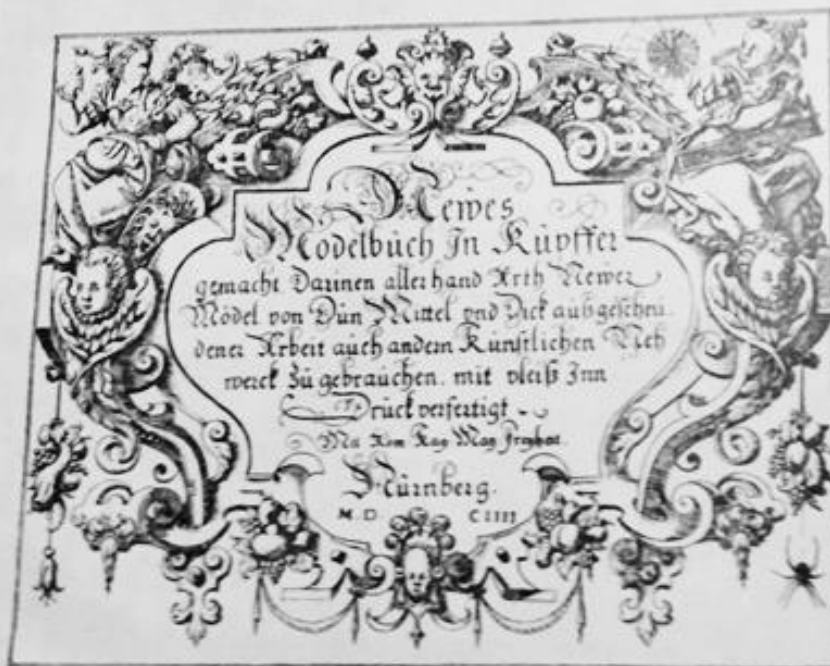 Newes
Modelbuch In Kupffer
gemacht Darinen allerhand Arth Newer
Mödel von Dün Mittel vnd Dick außgeschnidener
Arbeit auch andern Künstlichen Neh
werck zü gebrauchen. mit vleiß Inn
Drück verfertigt
Mit Röm Kay May Freyheit.
Nürnberg.
M.D. CIIII